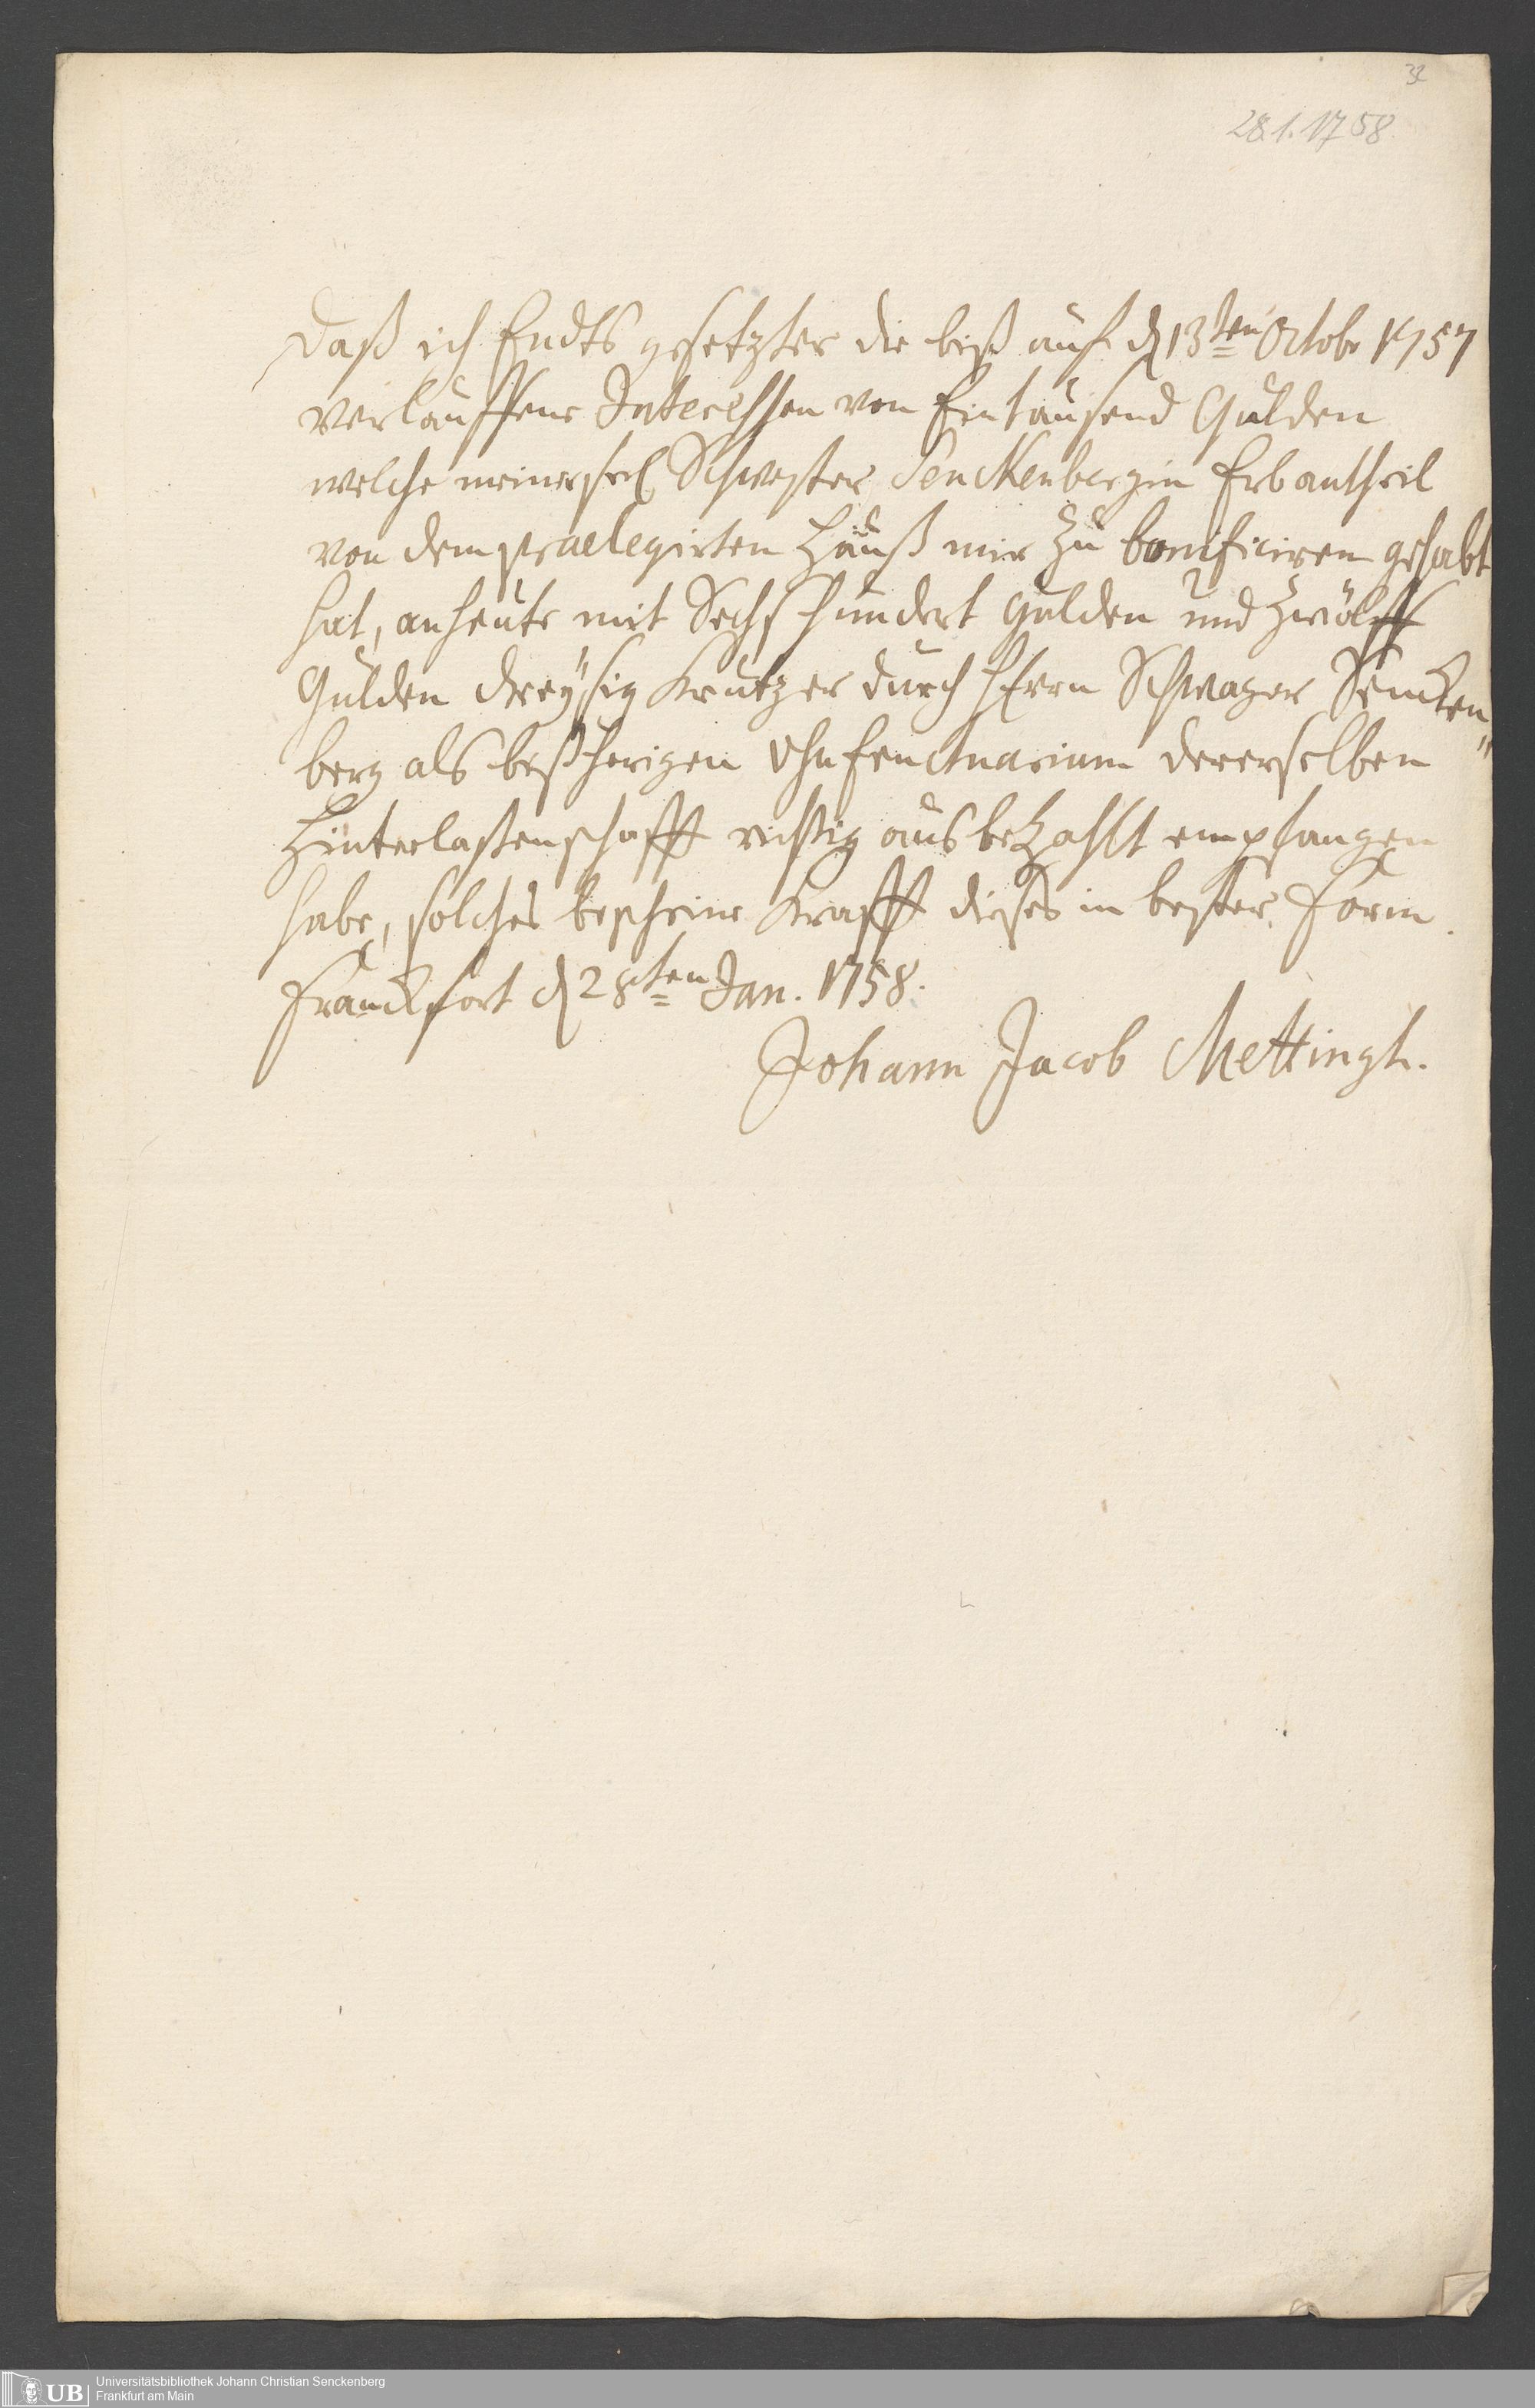 32
28.1.1758.
Daß ich Endts gesetzter die biß auf d 13ten Octobr 1757
verlauffene Interessen von Eintausend Gulden
welche meiner seel Schwester Senckenbergin Erbantheil
von dem praelegirten Hauß mir zu bonificiren gehabt
hat, anheute mit Sechs hundert Gulden und zwölff
Gulden dreÿsig Kreutzer durch Herrn Schwager Sencken"
berg als bißherigen Usufructuarium dererselben
Hinterlaßenschafft richtig ausbezahlt empfangen
habe, solches bescheine Krafft dieses in bester Form.
Franckfort d 28ten Jan. 1758.
Johann Jacob Mettingh.
UB Universitätsbibliothek Johann Christian Senckenberg
Frankfurt am Main